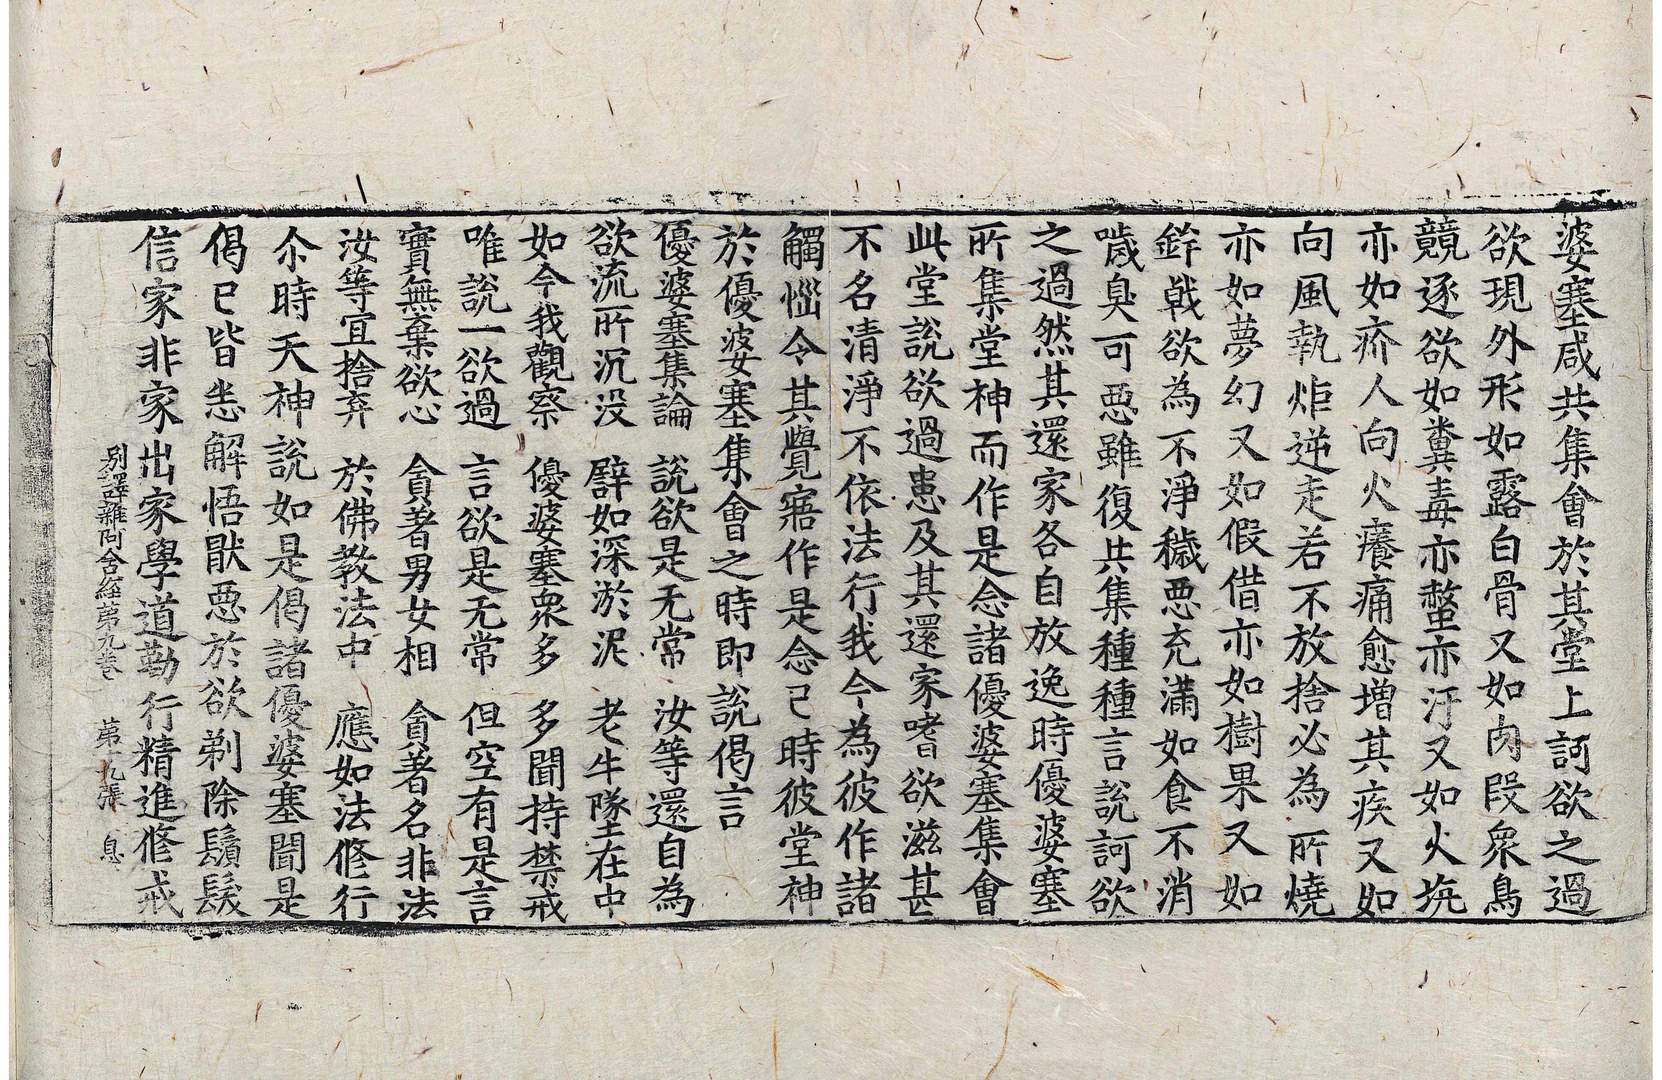 婆塞咸共集會於其堂上訶欲之過
欲現外形如露白骨又如肉段衆鳥
競逐欲如糞毒亦螫亦汙又如火坑
亦如疥人向火癢痛愈增其疾又如
向風執炬逆走若不放捨必為所燒
亦如夢幻又如假借亦如樹果又如
鉾戟欲為不淨穢惡充滿如食不消
噦臭可惡雖復共集種種言說訶欲
之過然其還家各自放逸時優婆塞
所集堂神而作是念諸優婆塞集會
此堂說欲過患及其還家嗜欲滋甚
不名清淨不依法行我今為彼作諸
觸惱令其覺寤作是念已時彼堂神
於優婆塞集會之時即說偈言
優婆塞集論 說欲是无常 汝等還自為
欲流所沉没 辟如深淤泥 老牛墜在中
如今我觀察 優婆塞衆多 多聞持禁戒
唯說一欲過 言欲是无常 但空有是言
實無棄欲心 貪著男女相 貪著名非法
汝等宜捨弃 於佛教法中 應如法修行
尒時天神說如是偈諸優婆塞聞是
偈已皆悉解悟猒惡於欲剃除鬚髮
信家非家出家學道勤行精進修戒
別譯雜阿含經第九卷 第十九張 息